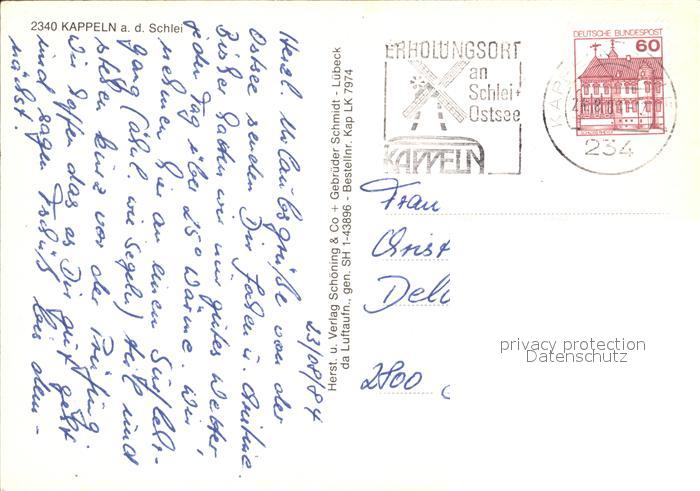 2340 KAPPELN a. d. Schlei
23/08/84
Herzl. Urlaubsgrüße von der
Ostsee senden Dir und
Bisher hatten wir nur gutes Wetter,
jeden Tag über 25° Wärme. Wir
nehmen hier an einem Surflehr-
gang (ähnl. wie Segeln) teil und
stehen kurz vor der Prüfung.
Wir hoffen das es Dir gut geht
und sagen Tschüß bis dem-
nächst.
Herst. u. Verlag Schöning & Co + Gebrüder Schmidt - Lübeck
da Luftaufn., gen. SH 1-43896 - Bestellnr. Kap LK 7974
ERHOLUNGSORT
an
Schlei+
Ostsee
KAPPELN
DEUTSCHE BUNDESPOST
60
234
Frau
2800
privacy protection
Datenschutz